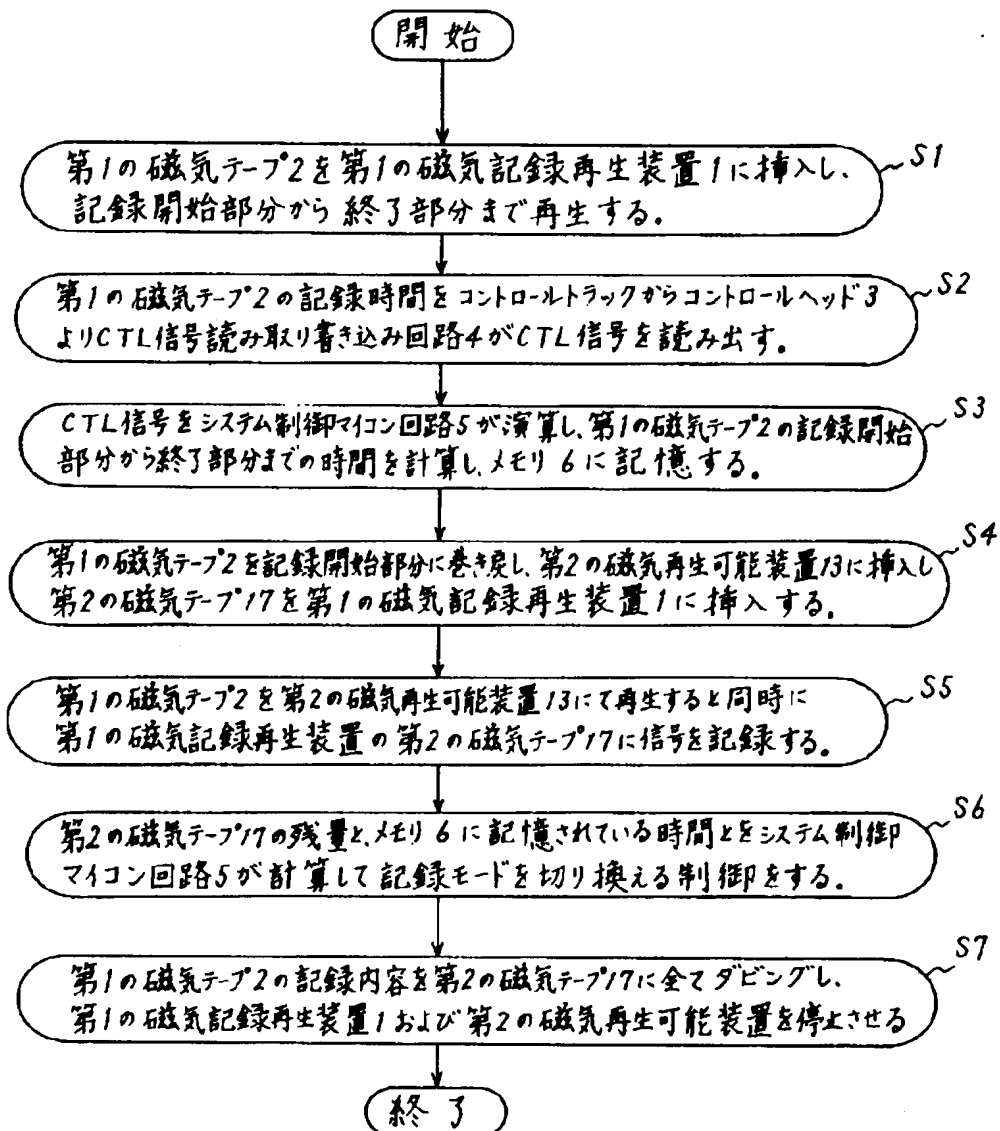 開始
第1の磁気テープ2を第1の磁気記録再生装置1に挿入し、
S1
記録開始部分から終了部分まで再生する。
第1の磁気テープ2の記録時間をコントロールトラックからコントロールヘッド3
S2
よりCTL信号読み取り書き込み回路4がCTL信号を読み出す。
CTL信号をシステム制御マイコン回路5が演算し、第1の磁気テープ2の記録開始
S3
部分から終了部分までの時間を計算し、メモリ6に記憶する。
第1の磁気テープ2を記録開始部分に巻き戻し、第2の磁気再生可能装置13に挿入し
S4
第2の磁気テープ17を第1の磁気記録再生装置1に挿入する。
第1の磁気テープ2を第2の磁気再生可能装置13にて再生すると同時に
S5
第1の磁気記録再生装置の第2の磁気テープ17に信号を記録する。
第2の磁気テープ17の残量と、メモリ6に記憶されている時間とをシステム制御
S6
マイコン回路5が計算して記録モードを切り換える制御をする。
第1の磁気テープ2の記録内容を第2の磁気テープ17に全てダビングし、
S7
第1の磁気記録再生装置1および第2の磁気再生可能装置を停止させる
終了